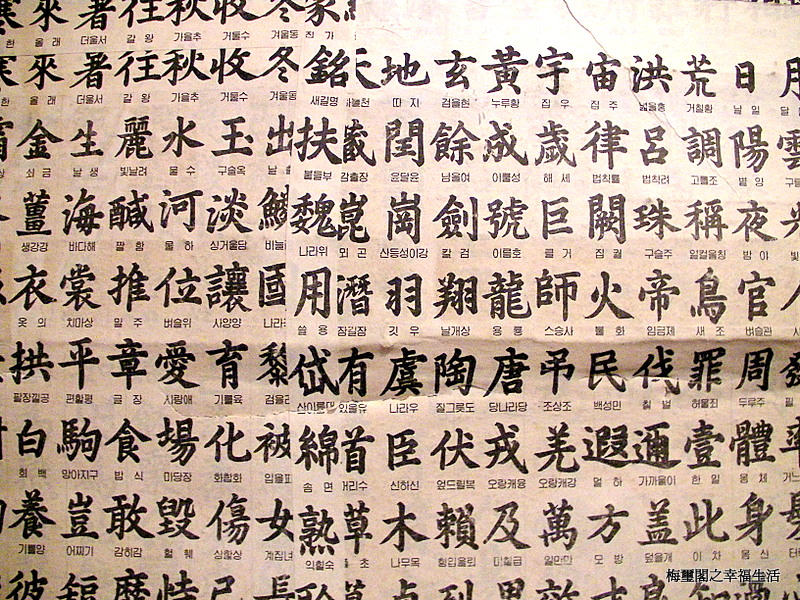 來 暑 往 秋 收 冬 家
한 올 래 더울서 갈 왕 가을추 거둘수 겨울동 집 가
寒 來 暑 往 秋 收 冬 銘 天 地 玄 黃 宇 宙 洪 荒 日 月
한 올 래 더울서 갈 왕 가을추 거둘수 겨울동 새길명 하늘천 따 지 검을현 누루황 집 우 집 주 넓을홍 거칠황 날 일 달
霜 金 生 麗 水 玉 出 扶 藏 閏 餘 成 歲 律 呂 調 陽 雲
쇠 금 날 생 빛날려 물 수 구슬옥 날 출 붙들부 감출장 윤달윤 남을여 이룰성 해 세 법칙률 법칙려 고를조 볕 양 구름
薑 海 鹹 河 淡 鱗 魏 崑 崗 劍 號 巨 闕 珠 稱 夜 光
생강강 바다해 짤 함 물 하 싱거울담 비늘 나라위 뫼 곤 산등성이강 칼 검 이름호 클 거 집 궐 구슬주 일컬을칭 밤 야 빛
衣 裳 推 位 讓 國 用 潛 羽 翔 龍 師 火 帝 鳥 官 人
옷 의 치마상 밀 추 벼슬위 사양양 나라 쓸 용 잠길잠 깃 우 날개상 용 룡 스승사 불 화 임금제 새 조 벼슬관 사
拱 平 章 愛 育 黎 岱 有 虞 陶 唐 弔 民 伐 罪 周 發
팔장낄공 편할평 글 장 사랑애 기를육 검을려 산이름대 있을유 나라우 질그릇도 당나라당 조상조 백성민 칠 벌 허물죄 두루주 필
白 駒 食 場 化 被 綿 首 臣 伏 戎 羌 遐 邇 壹 體 率
흰 백 망아지구 밥 식 마당장 화할화 입을피 솜 면 머리수 신하신 엎드릴복 오랑캐융 오랑캐강 멀 하 가까울이 한 일 몸 체 거느
養 豈 敢 毀 傷 女 熟 草 木 賴 及 萬 方 蓋 此 身 髮
기를양 어찌기 감히감 헐 훼 상할상 계집녀 익힐숙 초 나무목 힘입을뢰 미칠급 일만만 모 방 덮을개 이 차 몸 신 터
彼 靡 恃 己 長
梅璽閣之幸福生活